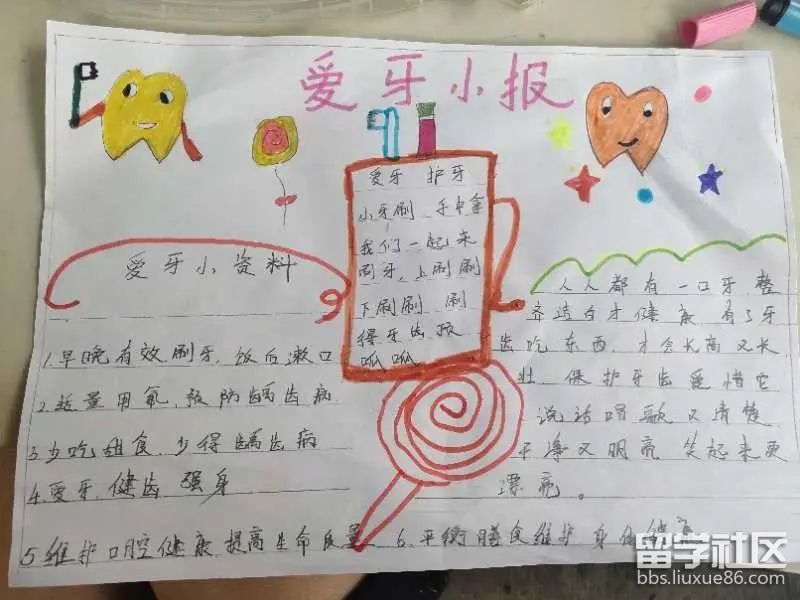 爱牙小报
爱牙小资料
1.早晚有效刷牙,饭后漱口
2.适量用氟,预防龋齿病
3.少吃甜食,少得龋齿病
4.爱牙,健齿 强身
5维护口腔健康,提高生命质量
6.平衡膳食维护身体健康
爱牙 护牙
小牙刷 手中拿
我们一起来
刷牙,上刷刷
下刷刷 刷
得牙齿
呱呱
人人都有一口牙,整
齐洁白才健康 有了牙
齿吃东西,才会长高又长
壮 保护牙齿爱惜它
说话唱歌又清楚
干净又明亮 笑起来更
漂亮。
留学社区
bbs.liuxue86.com